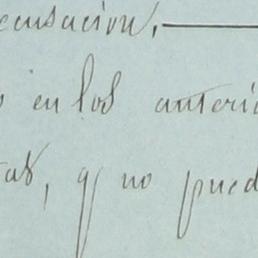 ecusación,—
s en los anteri
tas, y no pued